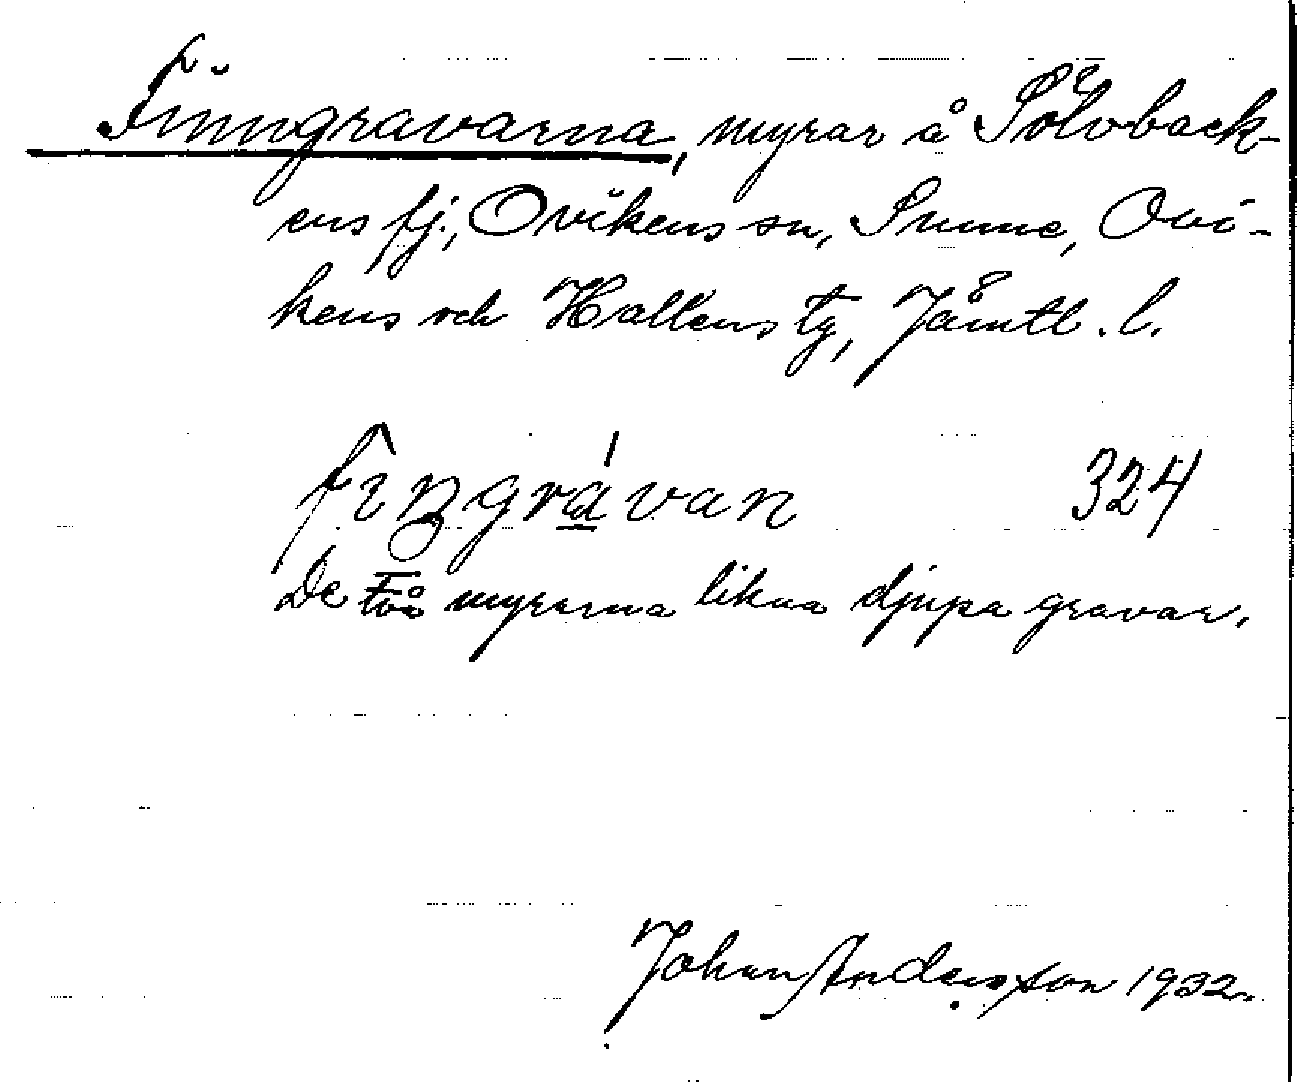 Finngravarna, myrar å Sölvback-
ens fj., Ovikens sn, Sunne, Ovi-
kens och Hallens tg, Jämtl. l.
fiŋgrávan 324
De två myrarna likna djupa gravar.
Johan Andersson 1932.